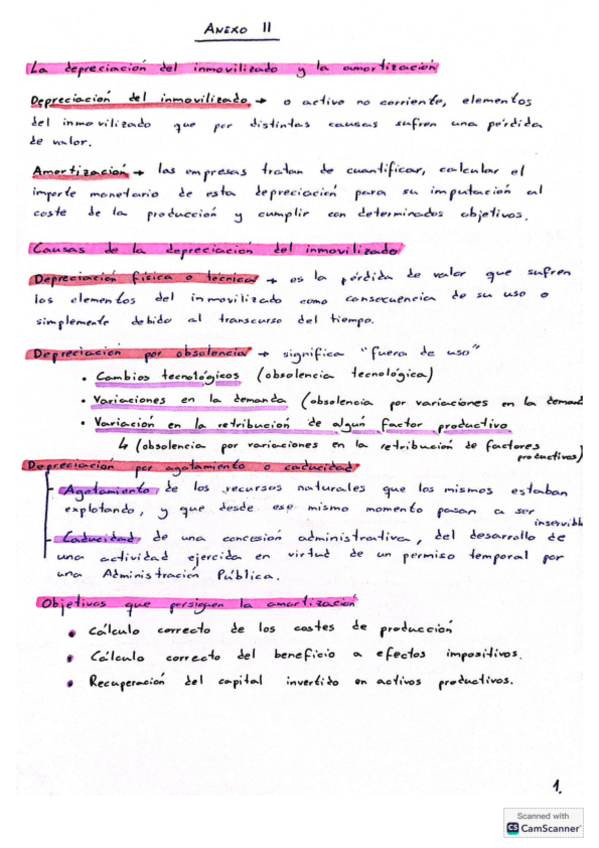 ANEXO II
La depreciación del inmovilizado y la amortización
Depreciación del inmovilizado → o activo no corriente, elementos
del inmovilizado que por distintas causas sufren una pérdida
de valor.
Amortización → las empresas tratan de cuantificar, calcular el
importe monetario de esta depreciación para su imputación al
coste de la producción y cumplir con determinados objetivos.
Causas de la depreciación del inmovilizado
Depreciación física o técnica → es la pérdida de valor que sufren
los elementos del inmovilizado como consecuencia de su uso o
simplemente debido al transcurso del tiempo.
Depreciación por obsolencia → significa "fuera de uso"
• Cambios tecnológicos (obsolencia tecnológica)
• Variaciones en la demanda (obsolencia por variaciones en la demand
• Variación en la retribución de algún factor productivo
↳ (obsolencia por variaciones en la retribución de factores
productivos)
Depreciación por agotamiento o caducidad
- Agotamiento de los recursos naturales que los mismos estaban
explotando, y que desde ese mismo momento pasan a ser
inservibl
- Caducidad de una concesión administrativa, del desarrollo de
una actividad ejercida en virtud de un permiso temporal por
una Administración Pública.
Objetivos que persiguen la amortización
• Cálculo correcto de los costes de producción
• Cálculo correcto del beneficio a efectos impositivos.
• Recuperación del capital invertido en activos productivos.
1.
Scanned with
CS CamScanner